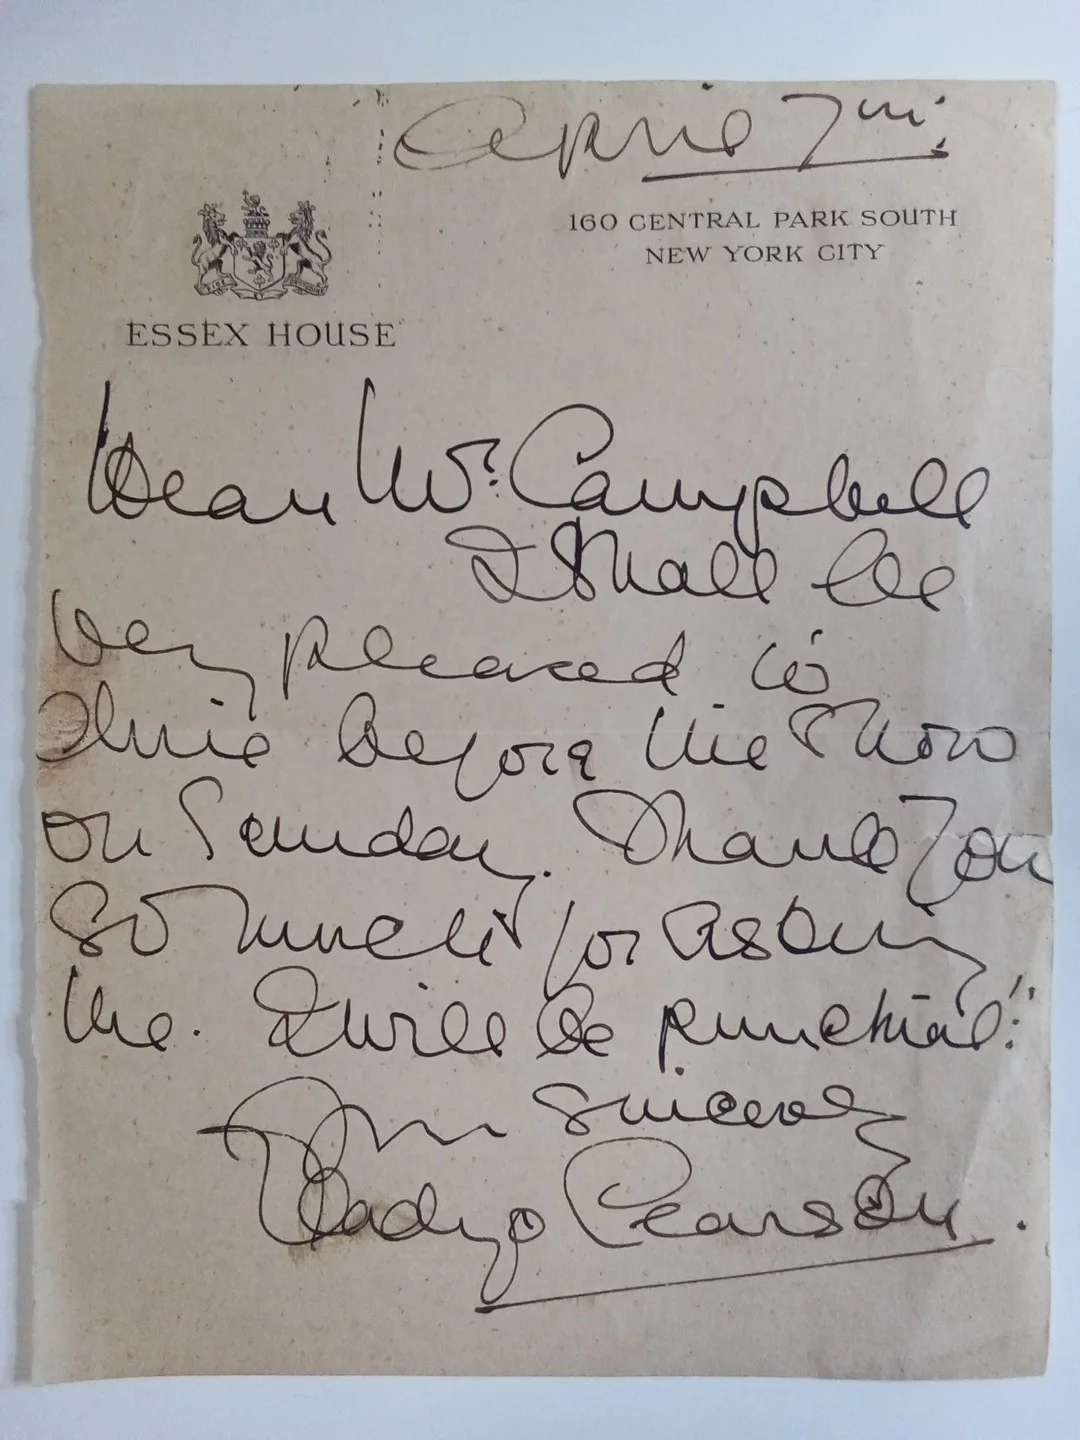 April 7th.
160 CENTRAL PARK SOUTH
NEW YORK CITY
ESSEX HOUSE
Dear Mr. Campbell
I shall be
very pleased to
dine before the show
on Sunday. Thank you
so much for asking
me. I will be punctual!!
Sincerely
Gladys Pearson.